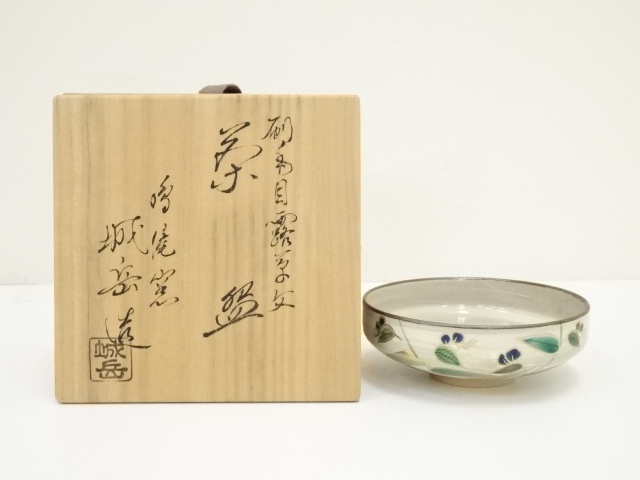 刷毛目露草文
茶盌
鳴滝窯
城岳造
城岳